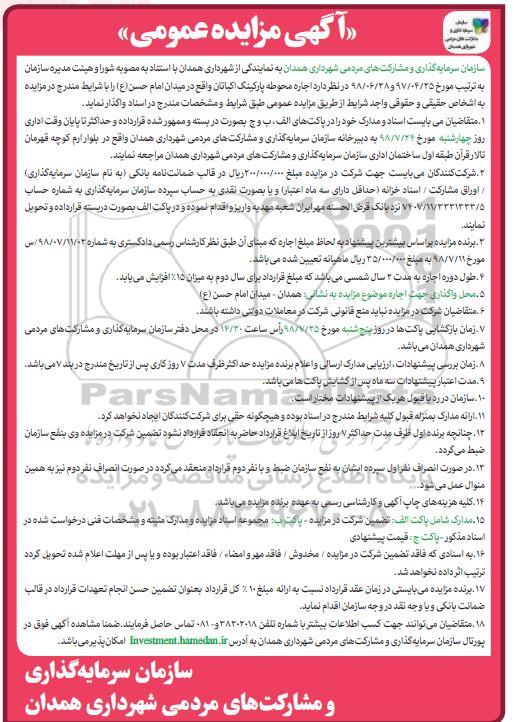 سازمان
سرمایه گذاری و
مشارکت های مردمی
شهرداری همدان
«آگهی مزایده عمومی»
سازمان سرمایه‌گذاری و مشارکت‌های مردمی شهرداری همدان به نمایندگی از شهرداری همدان با استناد به مصوبه شورا و هیئت مدیره سازمان
به ترتیب مورخ ۹۷/۰۴/۲۵ و ۹۸/۰۶/۲۸ در نظر دارد اجاره محوطه پارکینگ اکباتان واقع در میدان امام حسن(ع) را با شرایط مندرج در مزایده
به اشخاص حقیقی و حقوقی واجد شرایط از طریق مزایده عمومی طبق شرایط و مشخصات مندرج در اسناد واگذار نماید.
۱.متقاضیان می بایست اسناد و مدارک خود را در پاکت‌های الف، ب و ج بصورت در بسته و ممهور شده قرار داده و حداکثر تا پایان وقت اداری
روز چهارشنبه مورخ ۹۸/۷/۲۴ به دبیرخانه سازمان سرمایه‌گذاری و مشارکت‌های مردمی شهرداری همدان واقع در بلوار ارم کوچه قهرمان
تالار قرآن طبقه اول ساختمان اداری سازمان سرمایه‌گذاری و مشارکت‌های مردمی شهرداری همدان مراجعه نمایند.
۲.شرکت‌کنندگان می‌بایست جهت شرکت در مزایده مبلغ ۲۰۰/۰۰۰/۰۰۰ریال در قالب ضمانت‌نامه بانکی (به نام سازمان سرمایه‌گذاری)
/ اوراق مشارکت / اسناد خزانه (حداقل دارای سه ماه اعتبار) و یا بصورت نقدی به حساب سپرده سازمان سرمایه‌گذاری به شماره حساب
۷۴۰۷/۱۱/۳۳۳۱۳۳۳/۵ نزد بانک قرض الحسنه مهر ایران شعبه مهدیه واریز و اقدام نموده و در پاکت الف بصورت دربسته قرارداده و تحویل
نمایند.
۳.برنده مزایده بر اساس بیشترین پیشنهاد به لحاظ مبلغ اجاره که مبنای آن طبق نظر کارشناس رسمی دادگستری به شماره ۹۸/۰۷/۱۱/۰۲/س
مورخ ۹۸/۷/۱۱ به مبلغ ۳۵/۰۰۰/۰۰۰ ریال ماهیانه تعیین شده می باشد.
۴.طول دوره اجاره به مدت ۲ سال شمسی می‌باشد که مبلغ قرارداد برای سال دوم به میزان ۱۵٪ افزایش می‌یابد.
۵.محل واگذاری جهت اجاره موضوع مزایده به نشانی: همدان - میدان امام حسن (ع)
۶.متقاضیان شرکت در مزایده نباید منع قانونی شرکت در معاملات دولتی داشته باشند.
۷.زمان بازگشایی پاکت‌ها در روز پنج‌شنبه مورخ ۹۸/۷/۲۵ رأس ساعت ۱۴/۳۰ در محل دفتر سازمان سرمایه‌گذاری و مشارکت‌های مردمی
شهرداری همدان می‌باشد.
۸.زمان بررسی پیشنهادات ، ارزیابی مدارک ارسالی و اعلام برنده مزایده حداکثر ظرف مدت ۷ روز کاری پس از تاریخ مندرج در بند ۷ می‌باشد.
۹.مدت اعتبار پیشنهادات سه ماه پس از گشایش پاکت‌ها می باشد.
۱۰.سازمان در رد یا قبول هر یک از پیشنهادات مختار است.
۱۱.ارائه مدارک بمنزله قبول کلیه شرایط مندرج در اسناد بوده و هیچگونه حقی برای شرکت‌کنندگان ایجاد نخواهد کرد.
۱۲.چنانچه برنده اول ظرف مدت حداکثر ۷ روز از تاریخ ابلاغ قرارداد حاضر به انعقاد قرارداد نشود تضمین شرکت در مزایده وی بنفع سازمان
ضبط می‌گردد.
۱۳.در صورت انصراف نفر اول سپرده ایشان به نفع سازمان ضبط و با نفر دوم قرارداد منعقد می‌گردد در صورت انصراف نفر دوم نیز به همین
منوال عمل می‌شود.
۱۴.کلیه هزینه‌های چاپ آگهی و کارشناسی رسمی به عهده برنده مزایده می باشد.
۱۵.مدارک شامل پاکت الف: تضمین شرکت در مزایده - پاکت ب: مجموعه اسناد مزایده و مدارک مثبته و مشخصات فنی درخواست شده در
اسناد مذکور - پاکت ج: قیمت پیشنهادی
۱۶.به اسنادی که فاقد تضمین شرکت در مزایده / مخدوش / فاقد مهر و امضاء / فاقد اعتبار بوده و یا پس از مهلت اعلام شده تحویل گردد
ترتیب اثر داده نخواهد شد.
۱۷.برنده مزایده می‌بایستی در زمان عقد قرارداد نسبت به ارائه مبلغ ۱۰٪ کل قرارداد بعنوان تضمین حسن انجام تعهدات قرارداد در قالب
ضمانت بانکی و یا وجه نقد در وجه سازمان اقدام نماید.
۱۸.متقاضیان می‌توانند جهت کسب اطلاعات بیشتر با شماره تلفن ۳۸۲۰۲۰۱۸-۰۸۱ تماس حاصل فرمایند.ضمنا مشاهده آگهی فوق در
پورتال سازمان سرمایه‌گذاری و مشارکت‌های مردمی شهرداری همدان به آدرس Investment.hamedan.ir امکان پذیر می‌باشد.
سازمان سرمایه‌گذاری
و مشارکت‌های مردمی شهرداری همدان